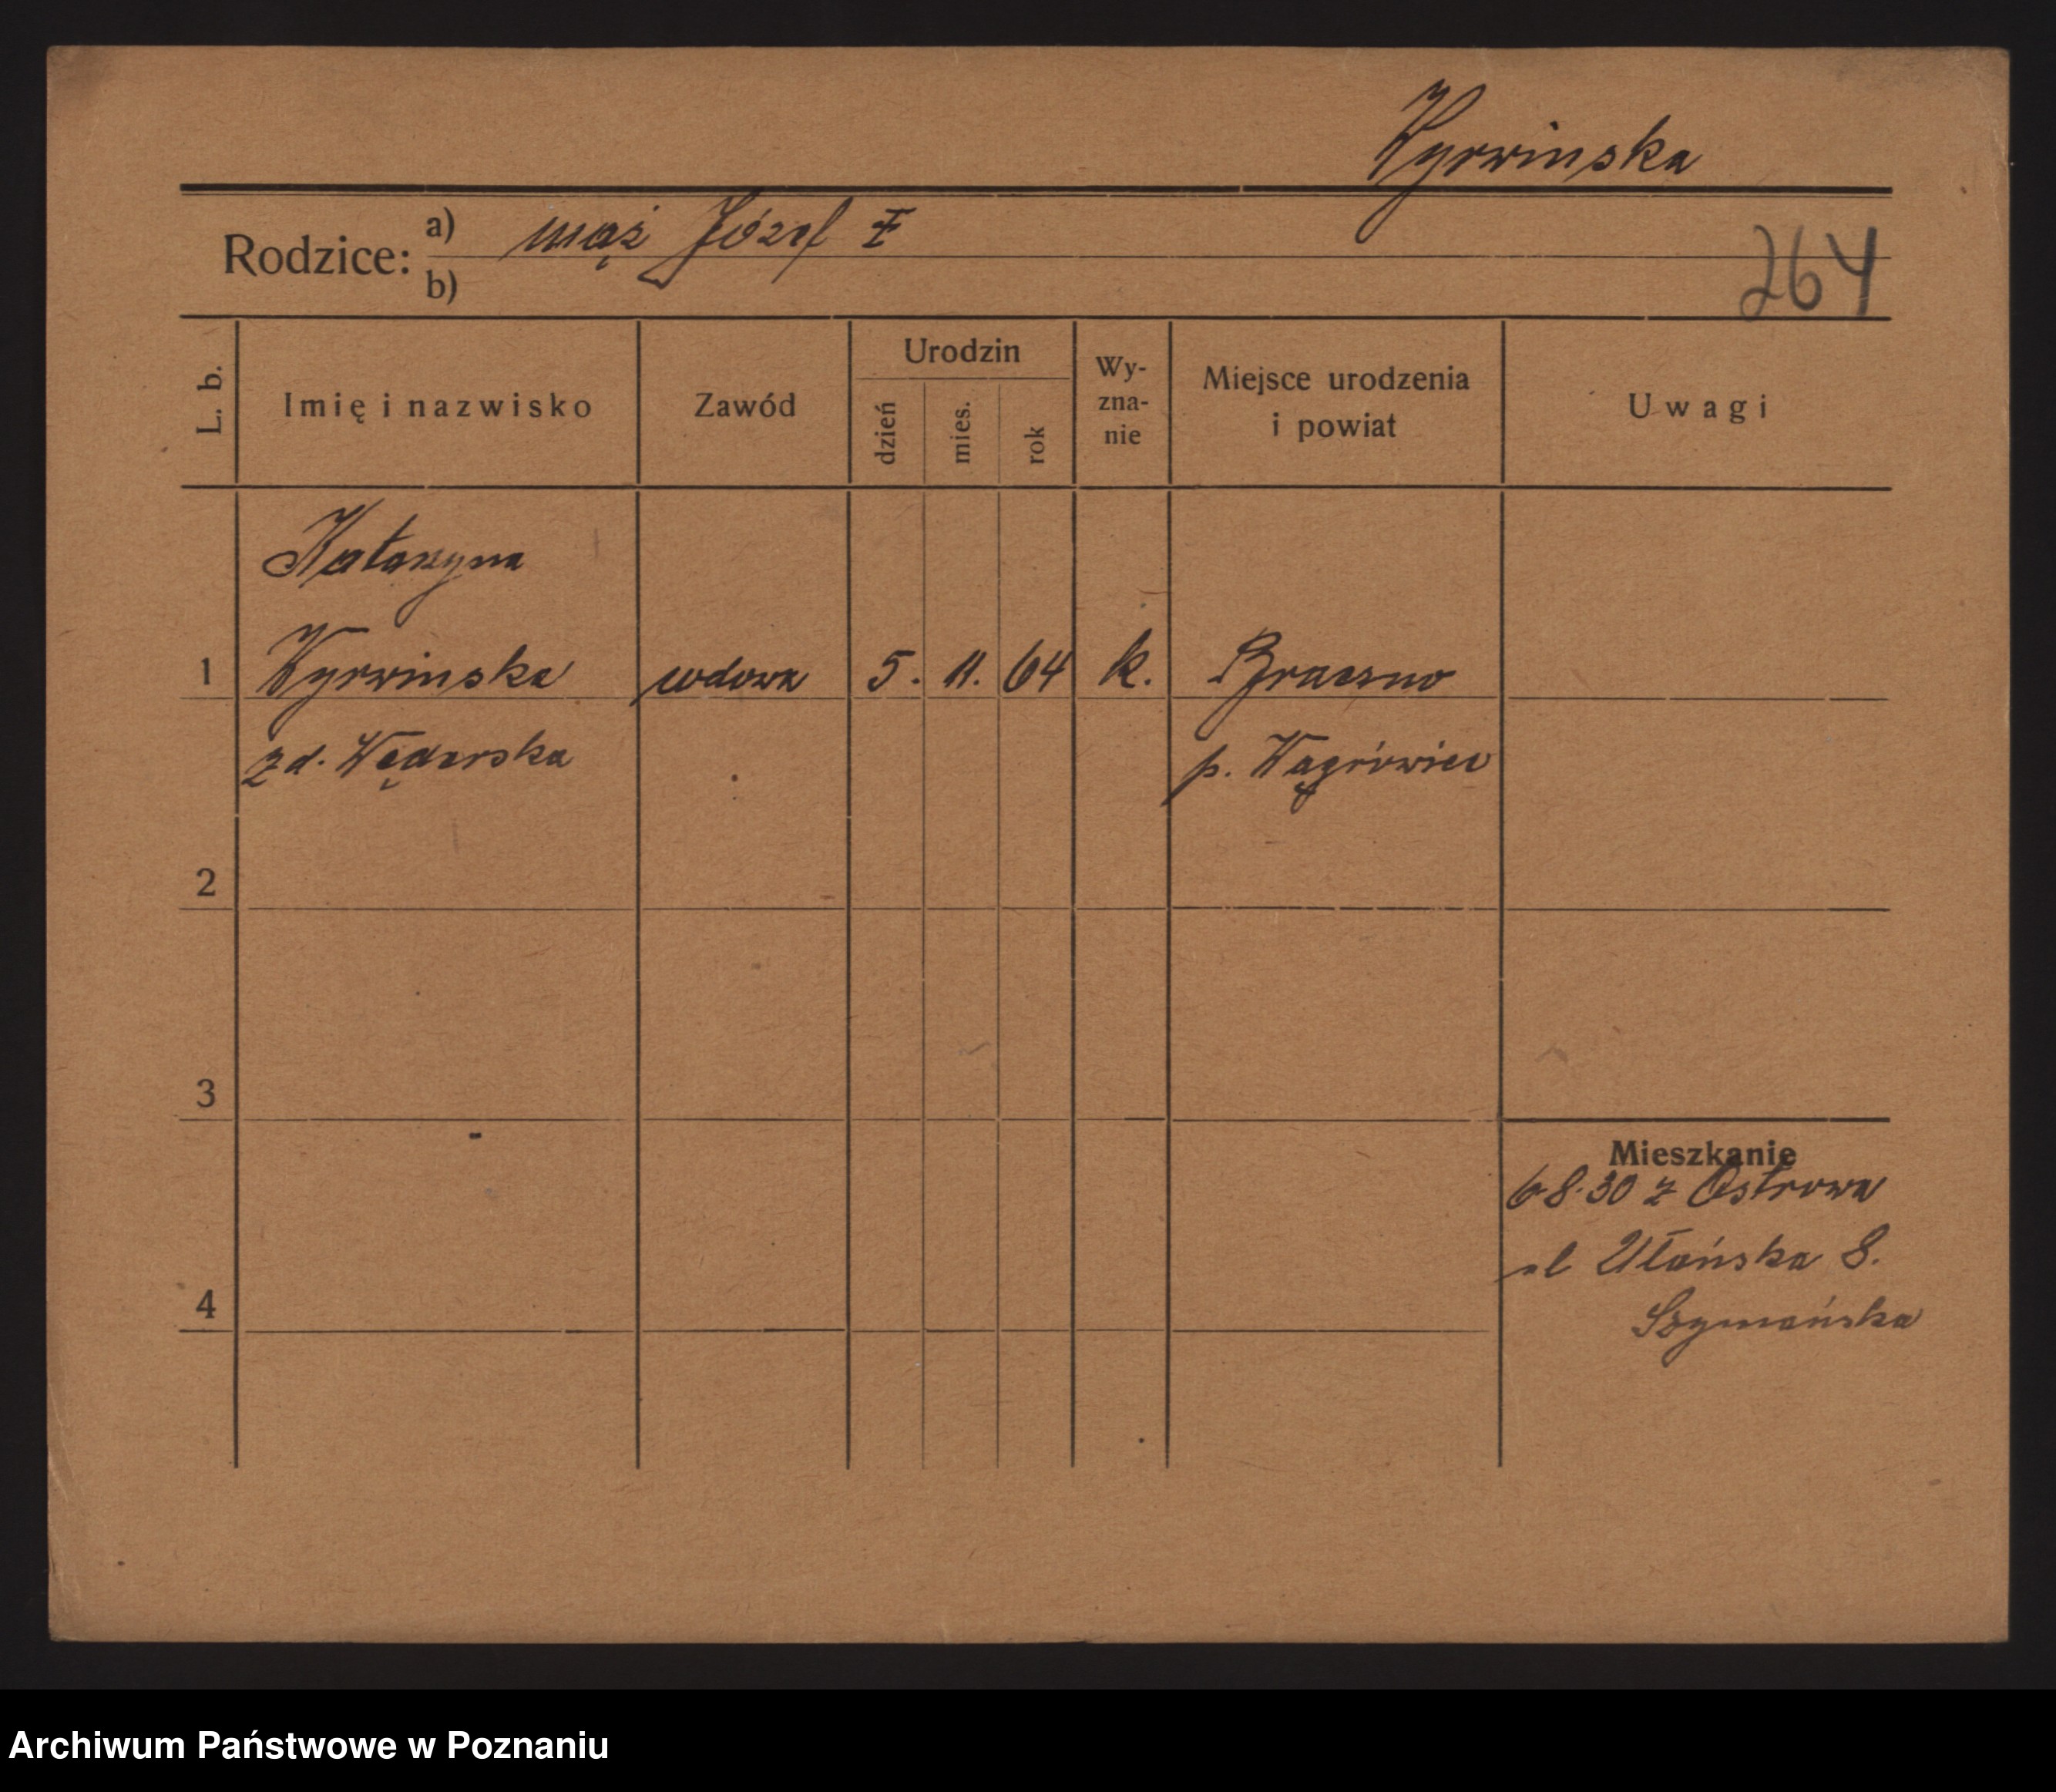 Wyrwinska
Rodzice: a) mąż Józef ‡
b)
264
L. b. Imię i nazwisko Zawód Urodzin dzień mies. rok Wy-zna-nie Miejsce urodzenia i powiat Uwagi
Katarzyna
1 Wyrwinska wdowa 5. 11. 64 k.
zd. p. Wągrówiec
2
3
Mieszkanie
6.8.30 z Ostrowa
ul Ułańska 8.
4 Szymańska
Archiwum Państwowe w Poznaniu